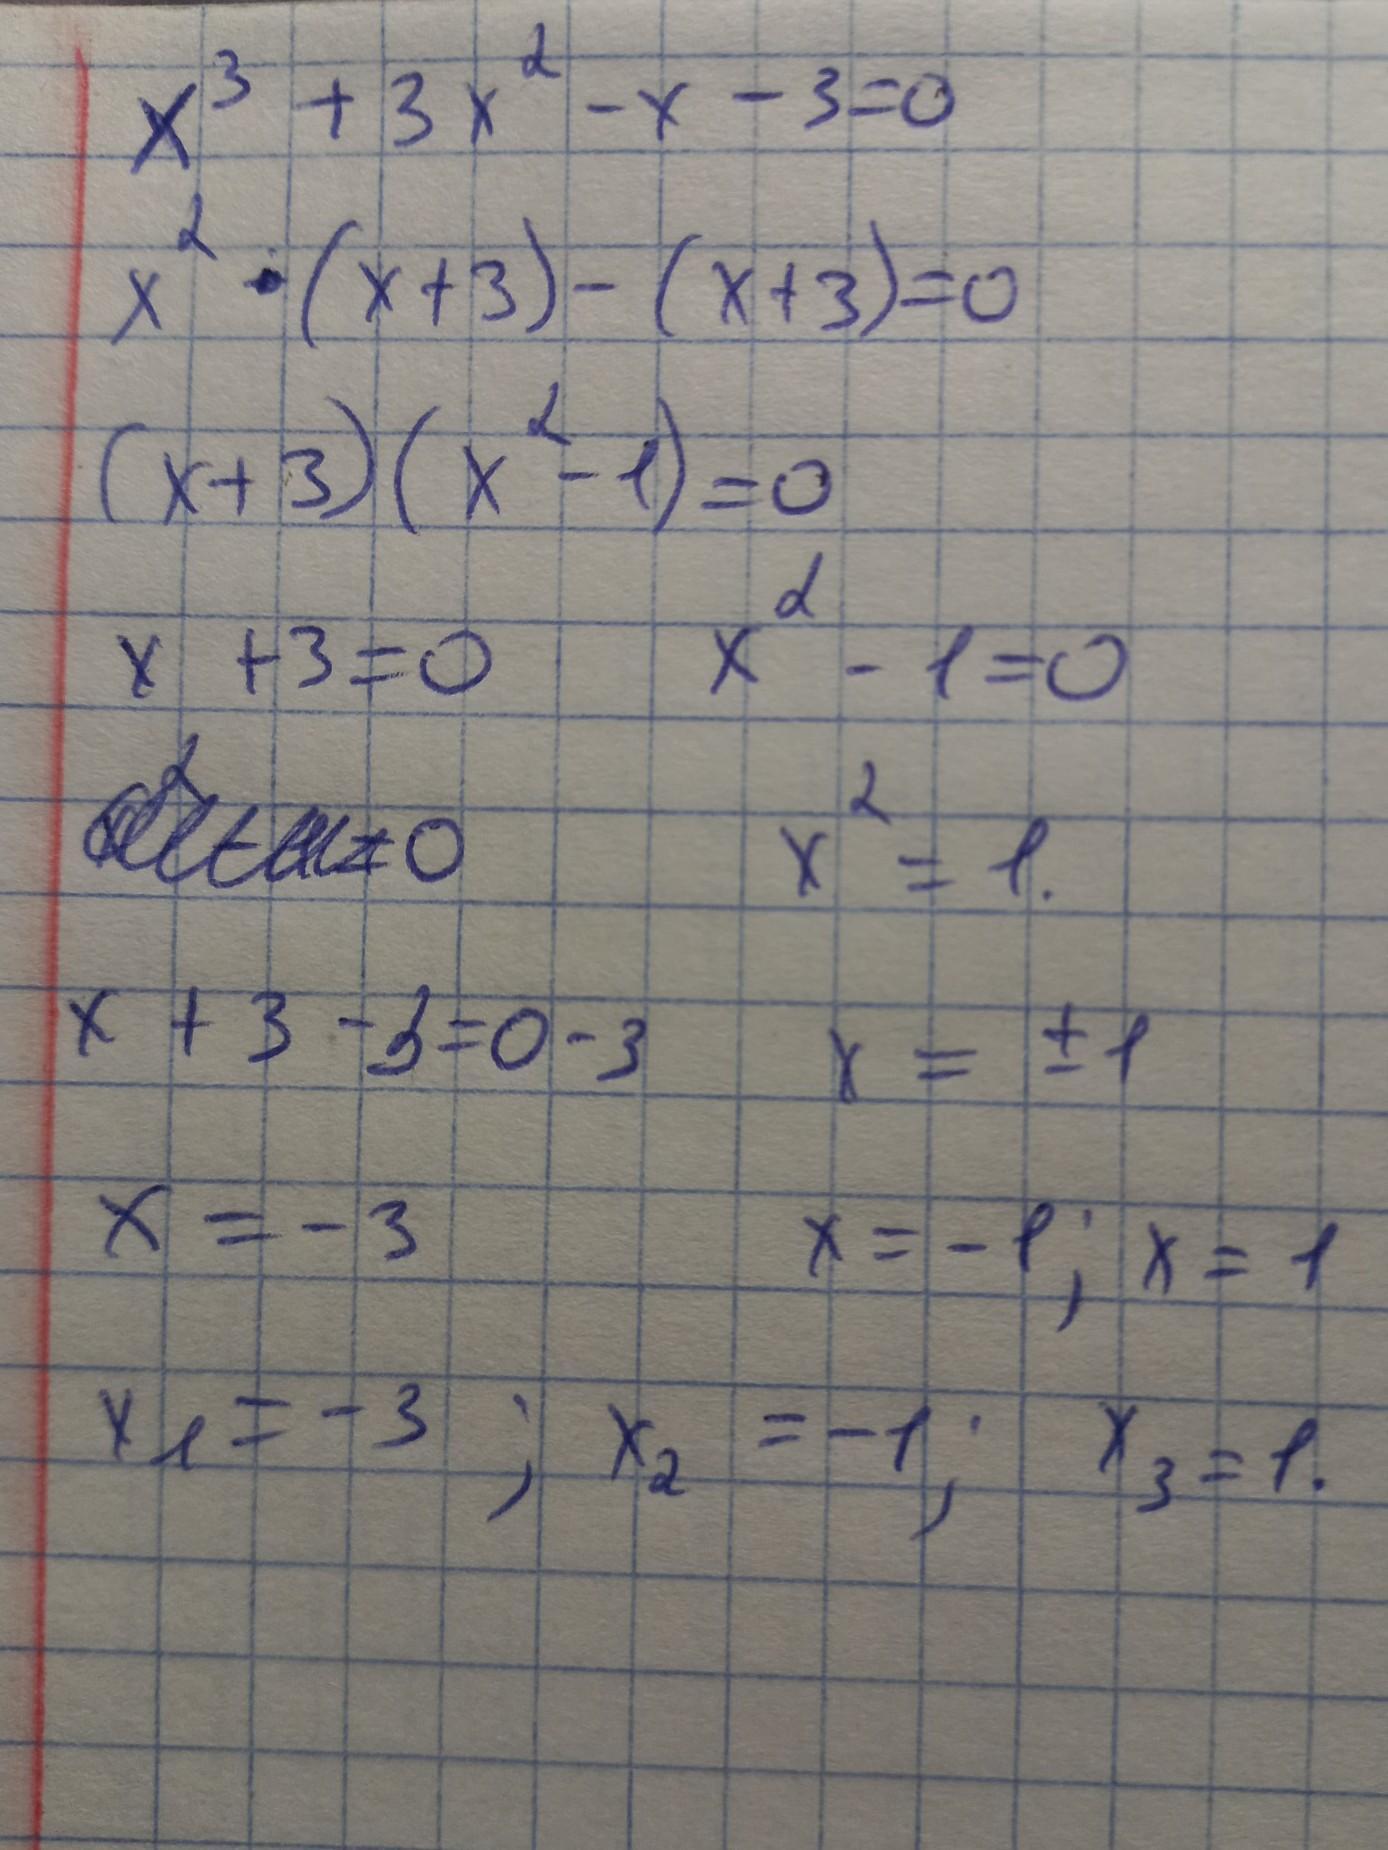 x³ + 3x² - x - 3 = 0
x² · (x+3) - (x+3) = 0
(x+3)(x² - 1) = 0
x + 3 = 0 x² - 1 = 0
= 0 x² = 1.
x + 3 - 3 = 0 - 3 x = ±1
x = -3 x = -1; x = 1
x₁ = -3; x₂ = -1; x₃ = 1.